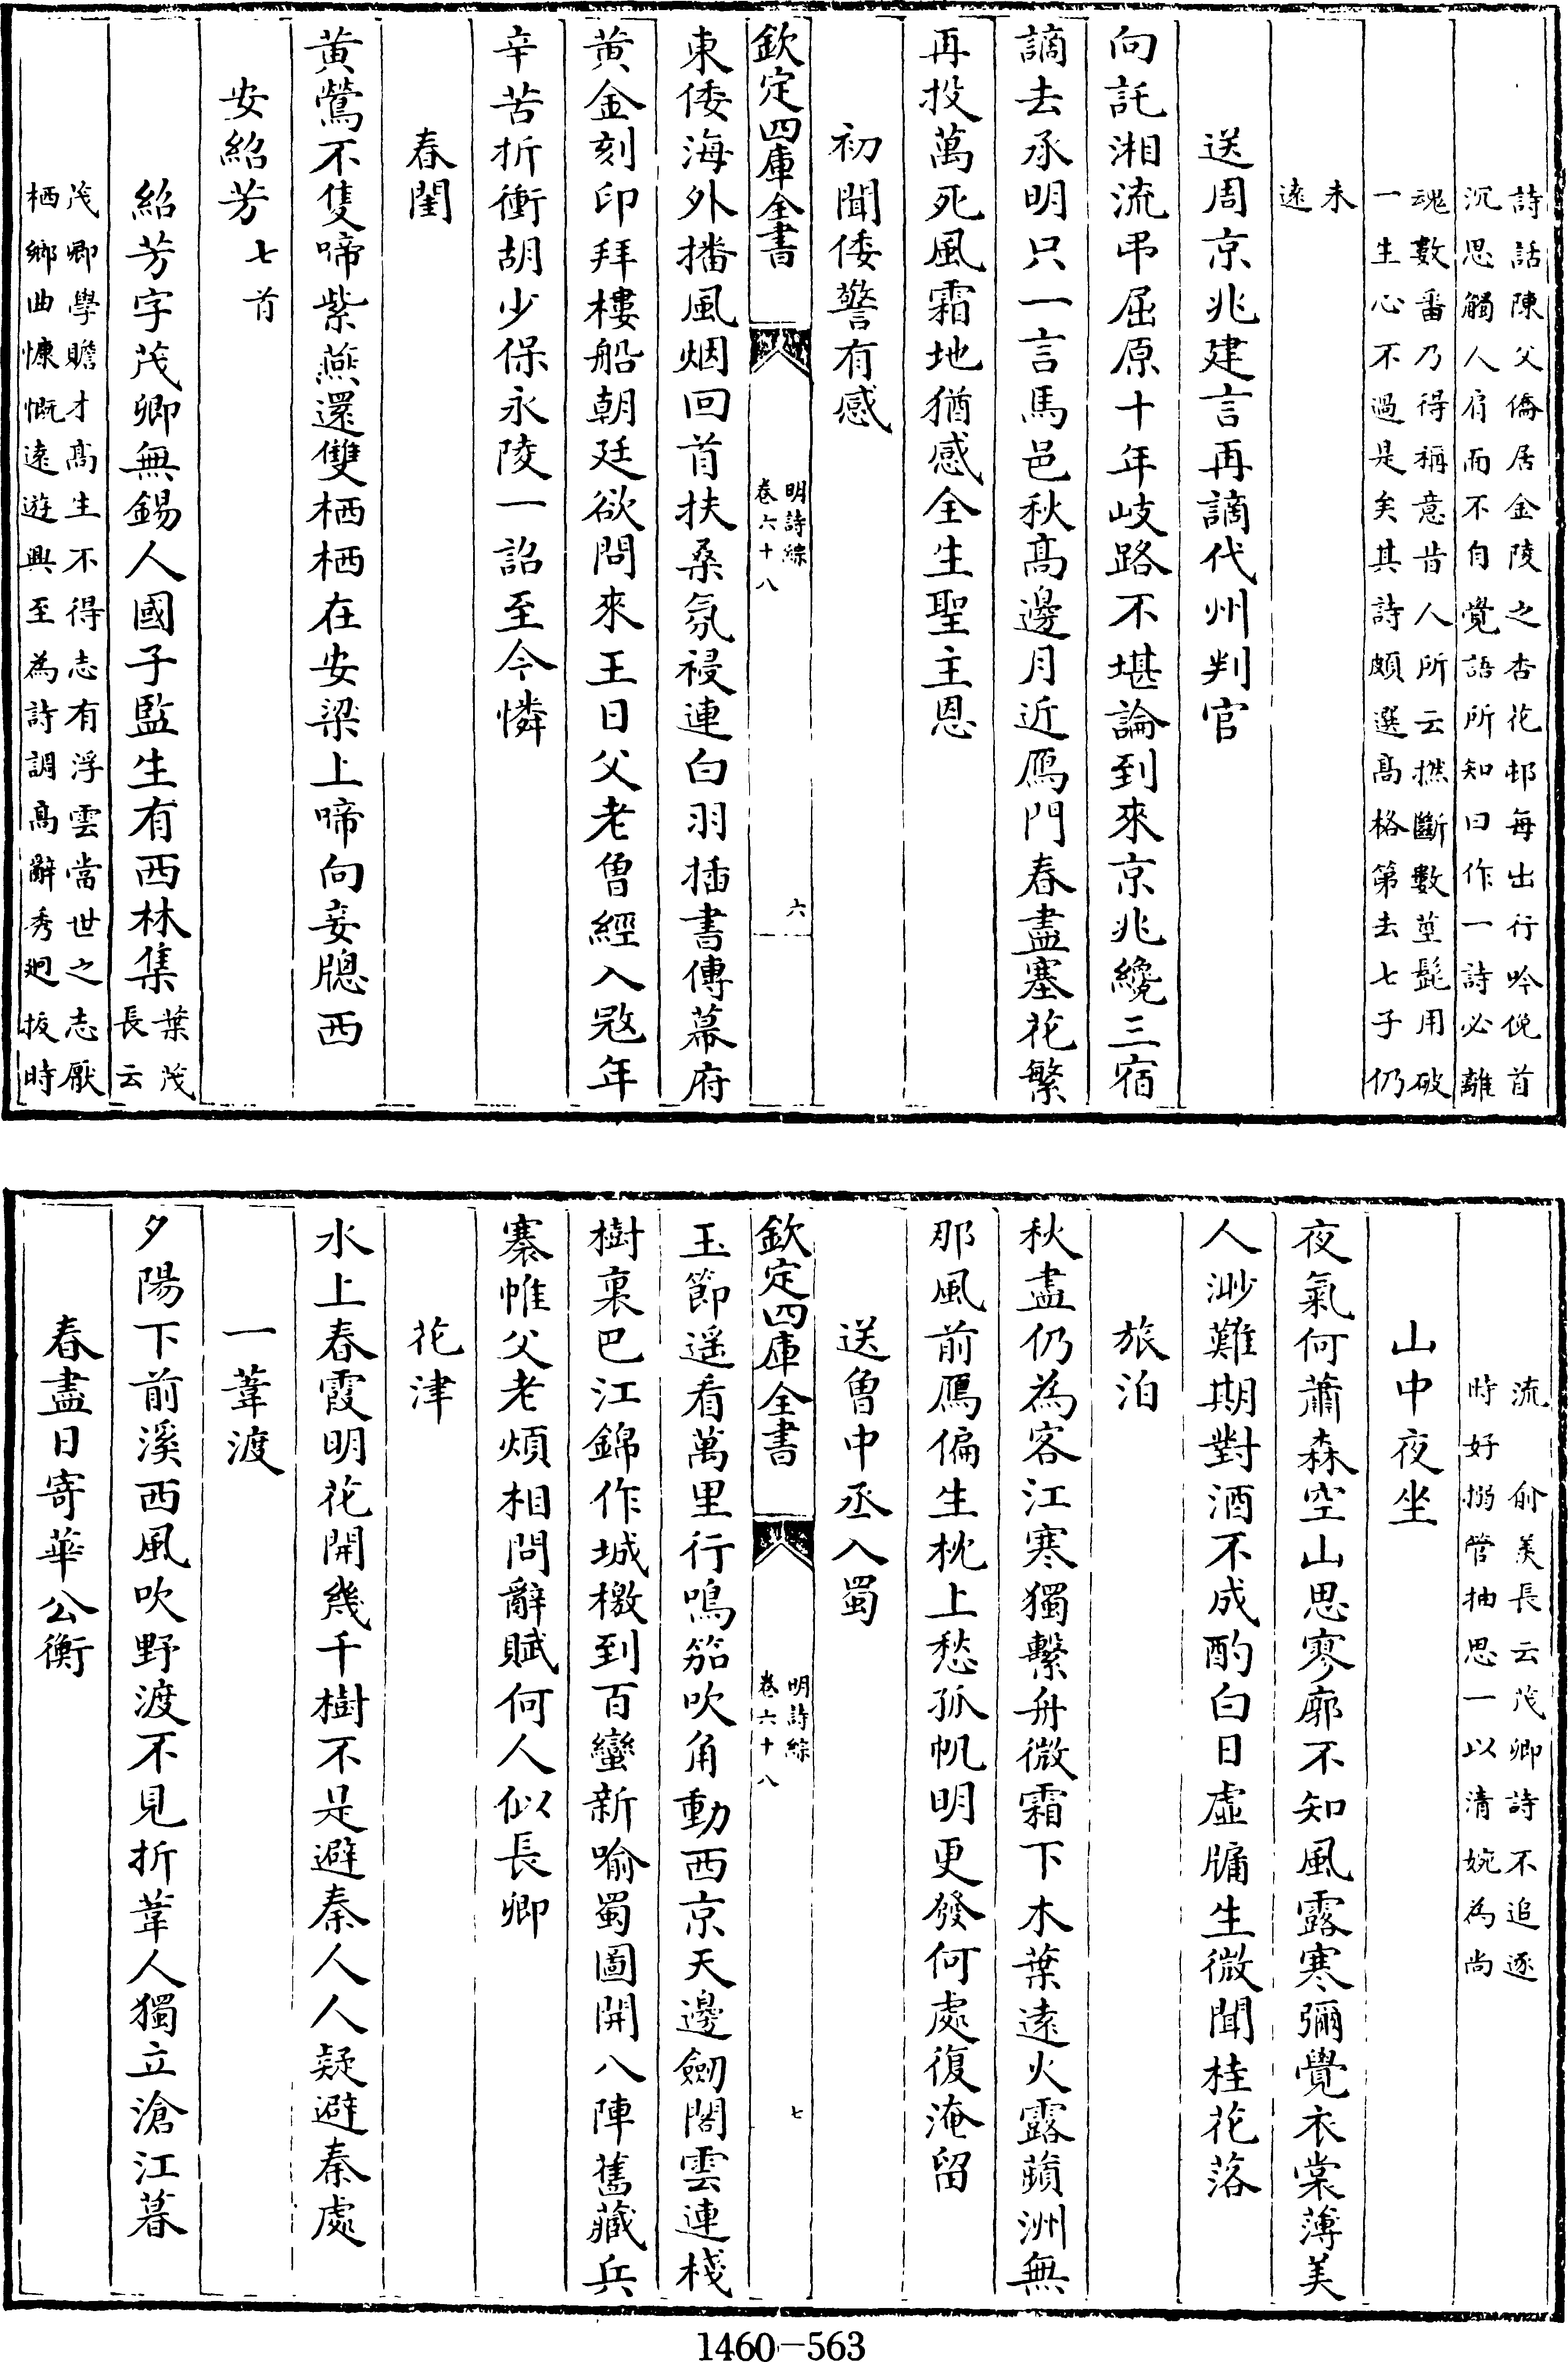 詩話陳父僑居金陵之杏花邨每出行吟俛首
沉思觸人肩而不自覺語所知曰作一詩必離
魂數番乃得稱意昔人所云撚斷數莖髭用破
一生心不過是矣其詩頗選髙格第去七子仍
未
逺
送周京兆建言再謫代州判官
向託湘流弔屈原十年岐路不堪論到來京兆纔三宿
謫去承明只一言馬邑秋髙邊月近鴈門春盡塞花繁
再投萬死風霜地猶感全生聖主恩
初聞倭警有感
欽定四庫全書
明詩綜
卷六十八
六
東倭海外播風烟回首扶桑氛祲連白羽插書傳幕府
黄金刻印拜樓船朝廷欲問來王日父老曾經入㓂年
辛苦折衝胡少保永陵一詔至今憐
春閨
黄鶯不隻啼紫燕還雙栖栖在妾梁上啼向妾牕西
安紹芳七首
紹芳字茂卿無錫人國子監生有西林集
葉茂
長云
茂卿學贍才髙生不得志有浮雲當世之志厭
栖鄉曲慷慨逺遊興至為詩調髙辭秀廻拔時
流 俞羨長云茂卿詩不追逐
時好搦管抽思一以清婉為尚
山中夜坐
夜氣何蕭森空山思寥廓不知風露寒彌覺衣裳薄美
人渺難期對酒不成酌白日虚牖生微聞桂花落
旅泊
秋盡仍為客江寒獨繫舟微霜下木葉逺火露蘋洲無
那風前鴈偏生枕上愁孤帆明更發何處復淹留
送曾中丞入蜀
欽定四庫全書
明詩綜
卷六十八
七
玉節遥看萬里行鳴笳吹角動西京天邊劒閣雲連棧
樹裏巴江錦作城檄到百蠻新喻蜀圖開八陣舊藏兵
褰帷父老煩相問辭賦何人似長卿
花津
水上春霞明花開幾千樹不是避秦人人疑避秦處
一葦渡
夕陽下前溪西風吹野渡不見折葦人獨立滄江暮
春盡日寄華公衡
1460-563